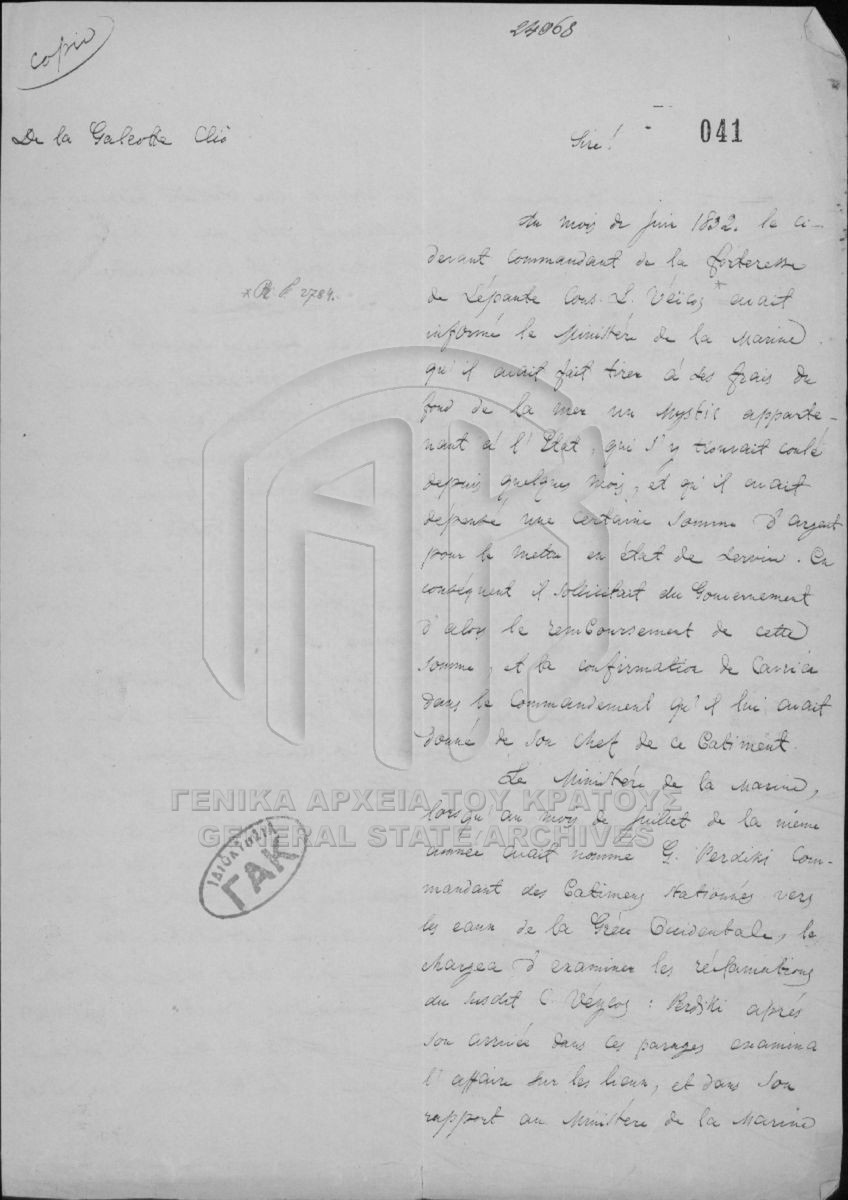 copie
24968
De la Galeotte Clio
Sire!
041
Au mois de juin 1832. le ci-
devant commandant de la forteresse
de Lépante Cons. L. Véicos * avait
* P. 2784.
informé le Ministère de la Marine
qu'il avait fait tirer à ses frais du
fond de la mer un Mystic apparte-
nant à l'Etat, qui s'y trouvait coulé
depuis quelques mois, et qu'il avait
dépensé une certaine somme d'argent
pour le mettre en état de service. En
conséquent il sollicitait du Gouvernement
d'alors le remboursement de cette
somme, et la confirmation de
dans le commandement qu'il lui avait
donné de son chef de ce Batiment.
Le Ministère de la Marine,
lorsqu'au mois de Juillet de la même
année avait nommé G. Perdiki Com-
mandant des Batimens Nationnés vers
les eaux de la Grèce Occidentale, le
chargea d'examiner les réclamations
du susdit C. Véycos : Perdiki après
son arrivée dans ces parages examina
l'affaire sur les lieux, et dans son
rapport au Ministère de la Marine
ΓΕΝΙΚΑ ΑΡΧΕΙΑ ΤΟΥ ΚΡΑΤΟΥΣ
GENERAL STATE ARCHIVES
ΓΑΚ